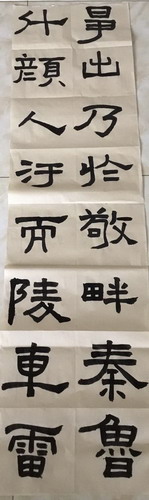 出乃於敬畔秦魯
什顏人汙而陵車雷